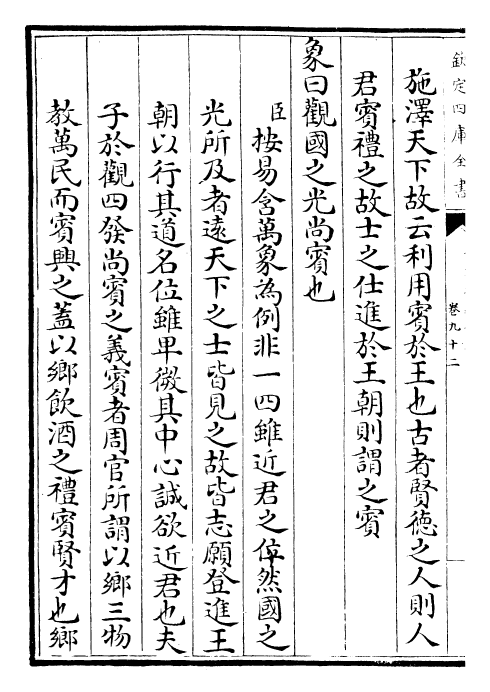 欽定四庫全書
卷九十二
施澤天下故云利用賓於王也古者賢德之人則人
君賓禮之故士之仕進於王朝則謂之賓
象曰觀國之光尚賓也
臣按易含萬象為例非一四雖近君之位然國之
光所及者遠天下之士皆見之故皆志願登進王
朝以行其道名位雖卑微其中心誠欲近君也夫
子於觀四發尚賓之義賓者周官所謂以鄉三物
教萬民而賓興之蓋以鄉飲酒之禮賓賢才也鄉